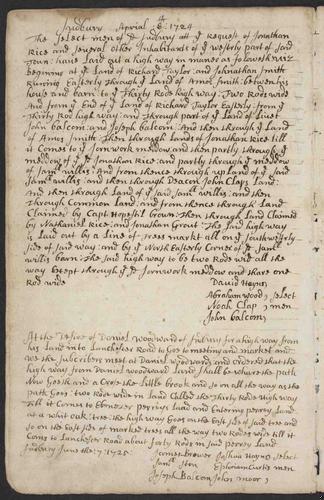 4
Sudbury Aprial ye 6: 1724
The Select men of ye Sudbury att ye Request of Jonathan
Rice and Several other Inhabitants of ye westrly part of Said
Town: have Laid out a high way in maner as followeth viz
begining at ye Land of Richard Taylor and Johnathan Smith
Runing Easterly through ye Land of Amos Smith: between his
house and barn to ye Thirty Rods high way: Two Rods wide
And from ye End of ye Land of Richard Taylor Easterly: from ye
Thirty Rod high way: and through part of ye Land of Liuet
John balcom: and Joseph balcom: And then through ye Land
of Amos Smith: Then through Lands of Jonathan Rice till
it Comes to ye meadow and then partly through ye
meddow of ye Jonathan Rice: and partly through ye meddow
of Sam willis: And from thence through up Land of ye said
Sam willis: and then through Deacon John Claps Land:
And then through Land of ye said Sam willis: and then
through Common Land: and from thence through Land
Claimed by Capt Hopstil Brown: Then through Land Claimed
by Nathaniel Rice: and Jonathan Grout: The Said high way
is Laid out by a Line of trees markt all on ye Southwestrly
Side of Said way: and by ye North Easterly Corner of ye Sam
willis barn: The Said high way to be two Rods wid all the
way Except through ye meddow and thare one
Rod wide
David Haynes
Abraham wood Select
Noah Clap men
John balcom

At the desier of Daniel Woodward of Sudbury for a high way from
his Land into Lanchester Road to Goe to meeting and market and
we the Subscribers meet at Daniel Woodward and ordered that the
high way from Daniel woodward Land Shall be whare the path
Now Goeth and a Cross the Little brook and So on all the way as the
path Goes: two Rods wide in Land Called the Thirty Rods High way
till it Comes to Ebenezer perrys Land and Entering perrey Land
at a whit oak tree: the high way Goes on the East Side of Said tree and
So on the East Side of marked trees all the way two Rods wide till it
Comes to Lanchester Road about forty Rods in Said perrey Land
Sudbury June the 17: 1725.
Thomas brower Joshua Haynes Select
Sam Ston Ephraim Curtis men
Joseph Balcom John moor